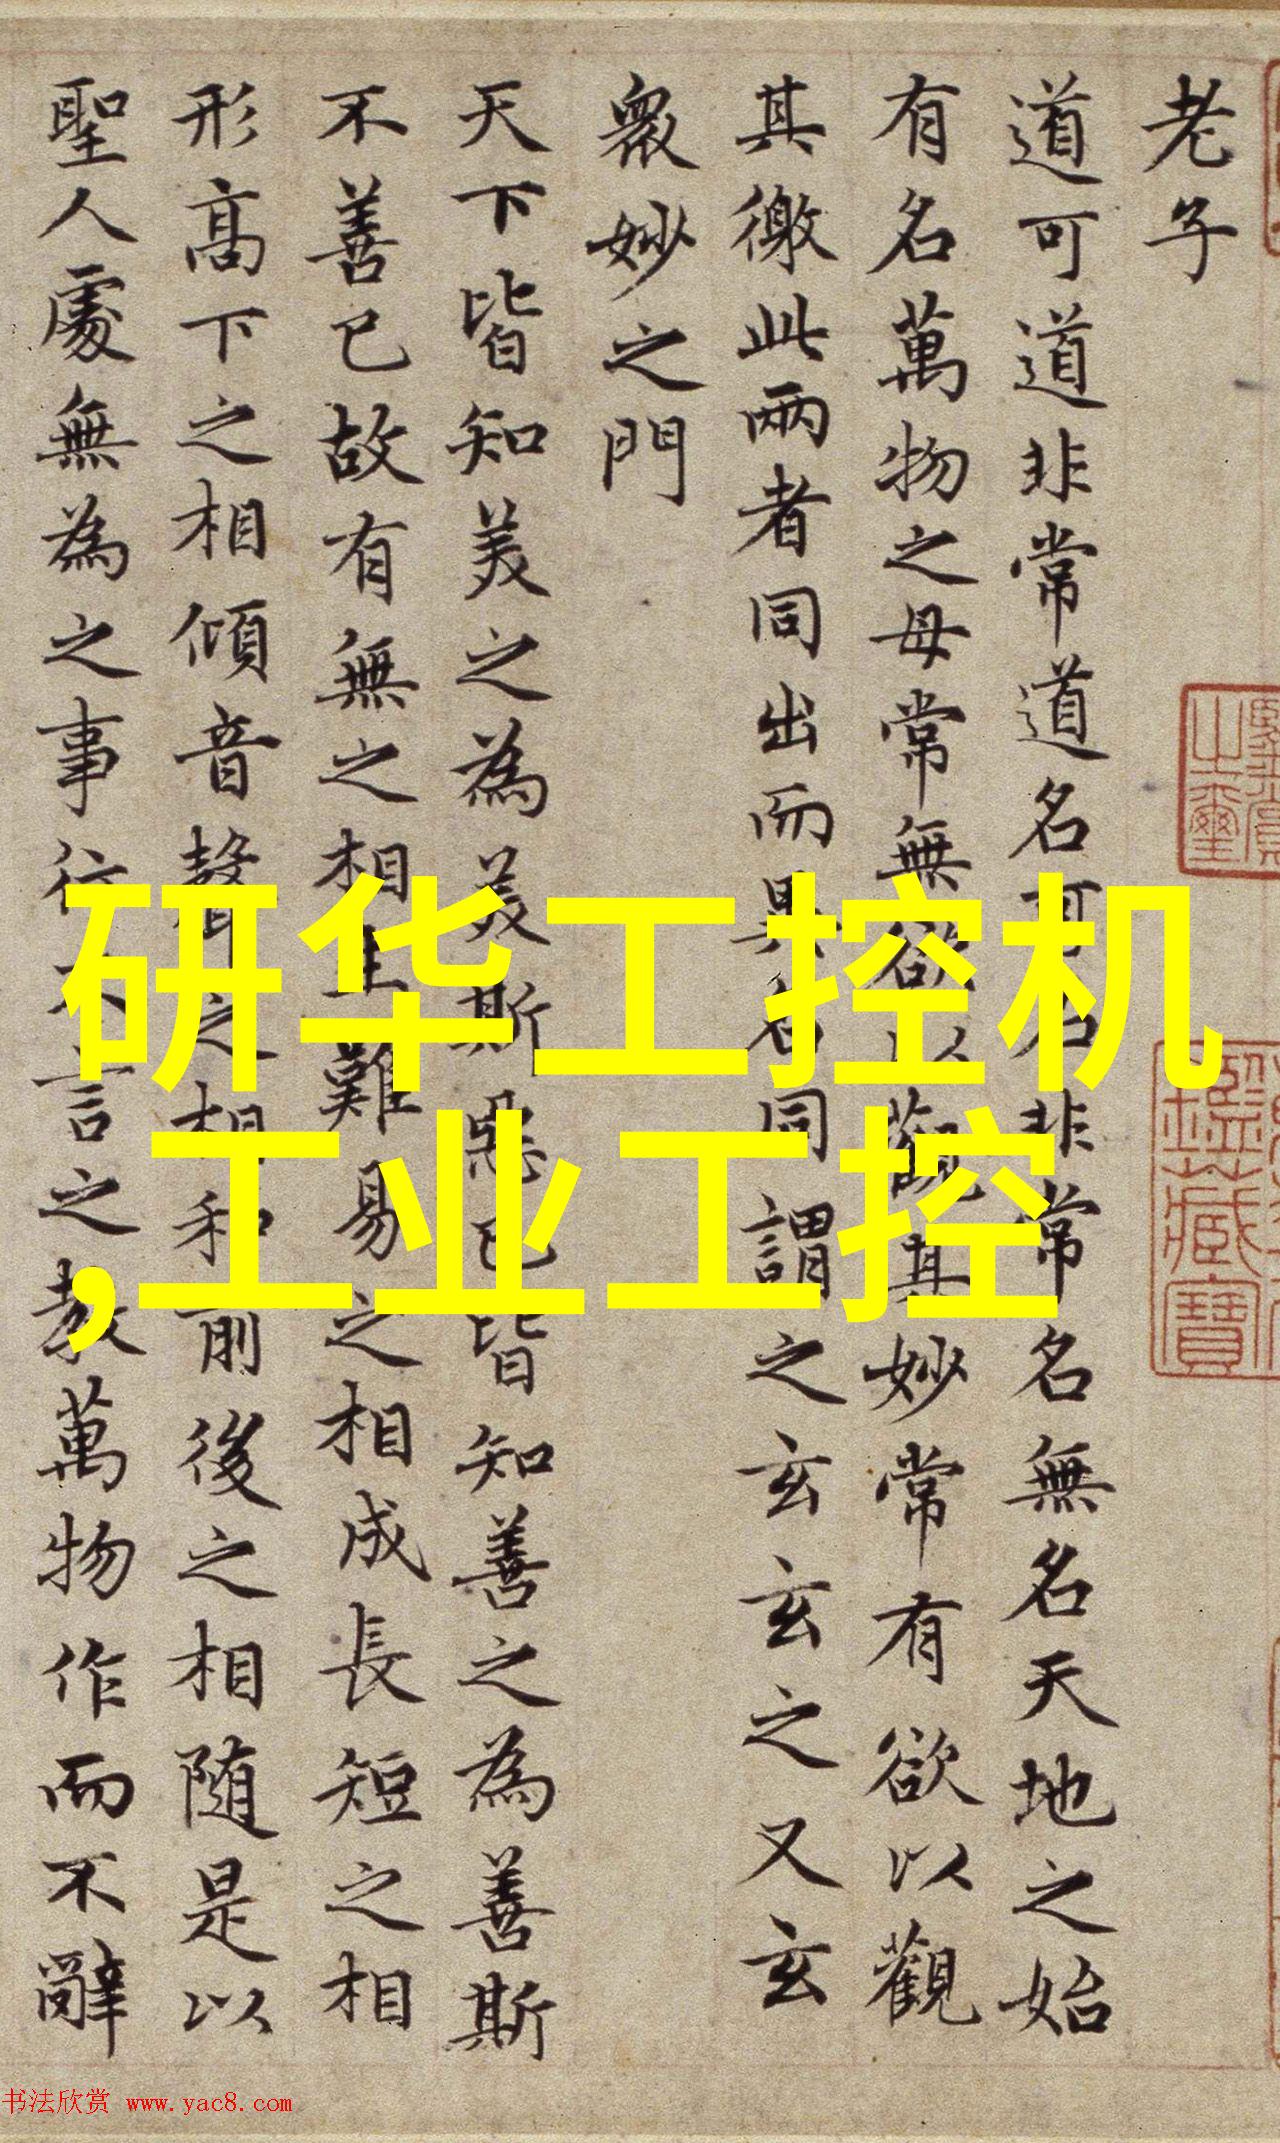 老子
道可道非常道名可名非常名無名天地之始
有名萬物之母常無欲以觀其妙常有欲以觀
其徼此兩者同出而異名同謂之玄玄之又玄
衆妙之門
天下皆知美之為美斯惡已皆知善之為善斯
不善已故有無之相生難易之相成長短之相
形高下之相傾音聲之相和前後之相随是以
聖人處無為之事行不言之教萬物作而不辭
研华工控机
,工业工控
书法欣赏 www.yac8.com